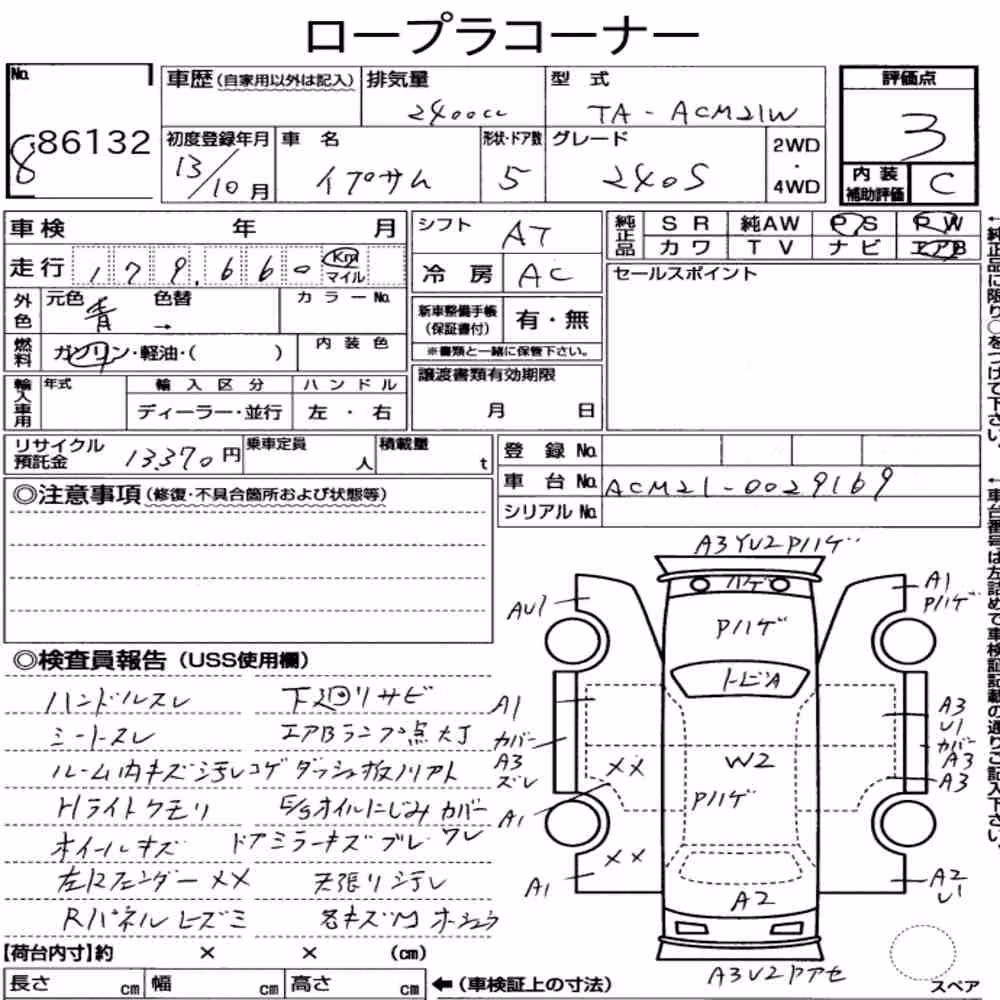 ロープラコーナー
No.
8 86132
車歴(自家用以外は記入) 排気量 型式 評価点
2400cc TA-ACM21W 3
初度登録年月 車名 形状・ドア数 グレード 2WD・4WD 内装補助評価
13/10月 イプサム 5 240S C
車検 年 月 シフト AT 純正品 SR 純AW PS PW
カワ TV ナビ エアB
走行 179,660 Km マイル 冷房 AC セールスポイント
外色 元色 青 色替 → カラーNo. 新車整備手帳(保証書付) 有・無
燃料 ガソリン・軽油・( ) 内装色 ※書類と一緒に保管下さい。
輸入車用 年式 輸入区分 ハンドル 譲渡書類有効期限
ディーラー・並行 左・右 月 日
リサイクル預託金 13,370円 乗車定員 人 積載量 t 登録No.
車台No. ACM21-0029169
シリアルNo.
◎注意事項(修復・不具合箇所および状態等)
◎検査員報告(USS使用欄)
ハンドルスレ 下廻リサビ
シートスレ エアBランプ点灯
ルーム内キズ汚レコゲ ダッシュ板ノリアト
Hライトクモリ E/Gオイルにじみ カバー
ホイールキズ ドアミラーキズ ブレ ワレ
左Rフェンダー××  天張リ汚レ
Rパネルヒズミ 各キズM ホシュウ
【荷台内寸】約 × × (cm)
長さ cm 幅 cm 高さ cm ←(車検証上の寸法)
A3YU2Pハゲ
ハゲ
AU1
A1
Pハゲ
Pハゲ
トビA
A1
カバー
A3
ズレ
A1
××
W2
Pハゲ
A3
U1
カバー
A3
A3
××
A1
A2
A2
U1
A3U2Pアセ
スペア
←純正品に限り○をつけて下さい。
←車台番号は左詰めで車検証記載の通りご記入下さい。